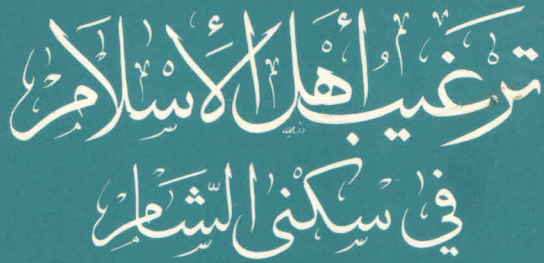 ترغيب أهل الأسلام
في سكنى الشام